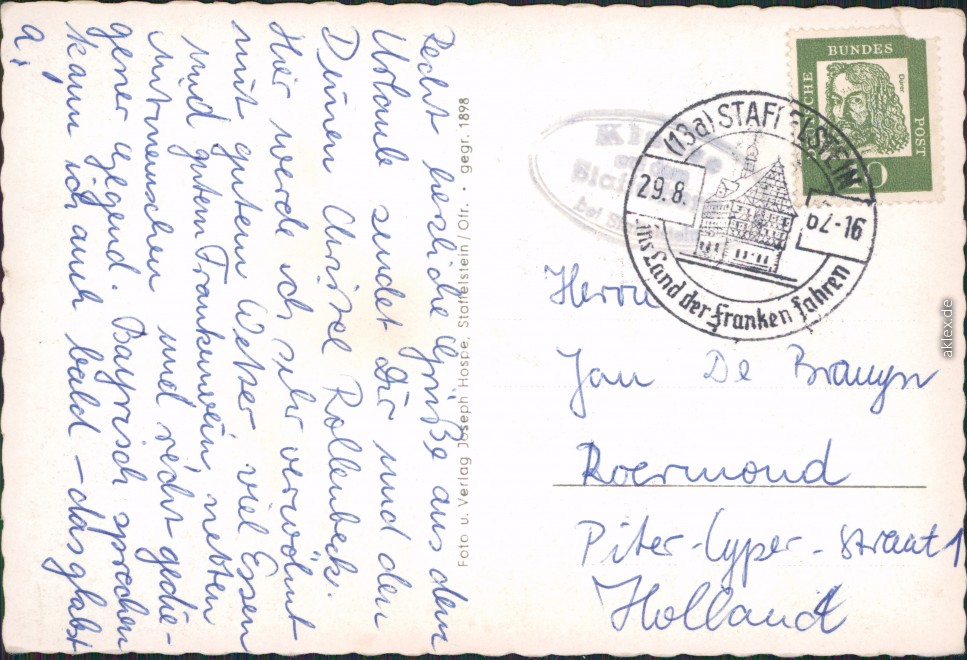 Recht herzliche Grüße aus dem
Urlaub sendet Dir und den
Deinen Christel Rollenbeck.
Hier werde ich sehr verwöhnt
mit gutem Wetter viel Essen
und gutem Frankenwein, netten
Mitmenschen und recht gedie-
gener Gegend. Bayrisch sprechen
kann ich auch bald – das glabst
a!
Foto u. Verlag Joseph Hospe, Staffelstein/Ofr. • gegr. 1898
BUNDES
POST
Dürer
(13a) STAFFELSTEIN
29.8.
62-16
ins Land der Franken fahren
Herrn
Jan De Bruyn
Roermond
Piter-Cyper-straat 1
Holland
aklex.de